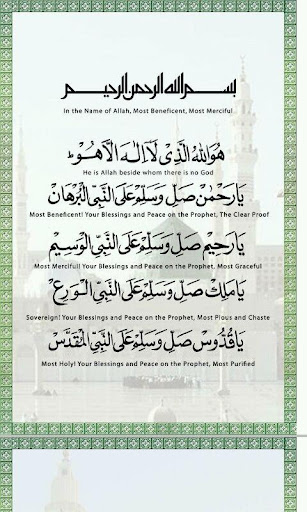 بسم الله الرحمن الرحيم
In the Name of Allah, Most Beneficent, Most Merciful
هُوَاللهُ الَّذِیْ لَآ اِلٰهَ اِلَّا هُوَ ؕ
He is Allah beside whom there is no God
يَا رَحْمٰنُ صَلِّ وَسَلِّمْ عَلَى النَّبِيِّ الْبُرْهَانِ
Most Beneficent! Your Blessings and Peace on the Prophet, The Clear Proof
يَا رَحِيْمُ صَلِّ وَسَلِّمْ عَلَى النَّبِيِّ الْوَسِيْمِ
Most Merciful! Your Blessings and Peace on the Prophet, Most Graceful
يَا مَلِكُ صَلِّ وَسَلِّمْ عَلَى النَّبِيِّ الْوَرِعِ
Sovereign! Your Blessings and Peace on the Prophet, Most Pious and Chaste
يَا قُدُّوْسُ صَلِّ وَسَلِّمْ عَلَى النَّبِيِّ الْمُقَدَّسِ
Most Holy! Your Blessings and Peace on the Prophet, Most Purified